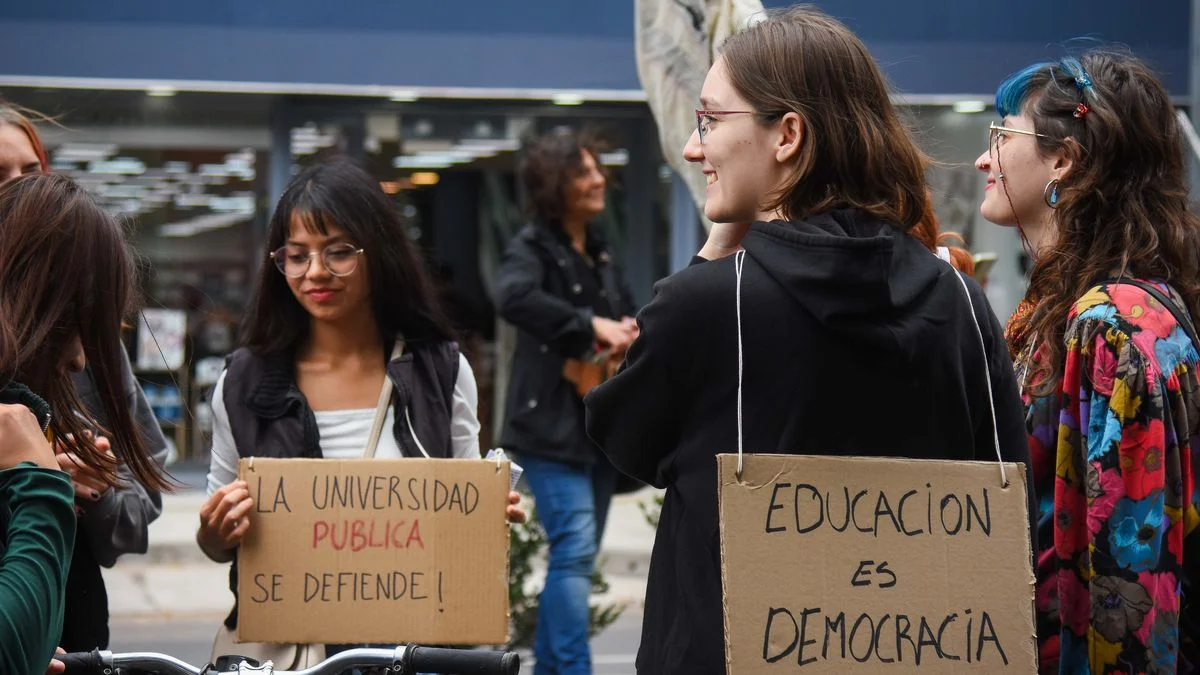 LA UNIVERSIDAD
PUBLICA
SE DEFIENDE!
EDUCACION
ES
DEMOCRACIA